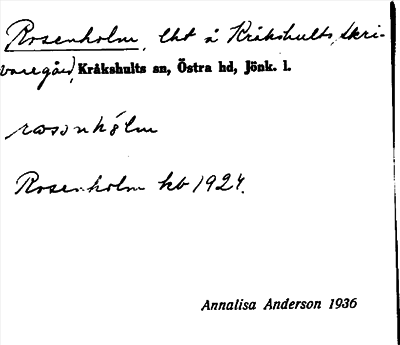 Rosenholm, lht å Kråkshults, Skri-
varegård, Kråkshults sn, Östra hd, Jönk. l.
Rosenholm kb 1924.
Annalisa Anderson 1936